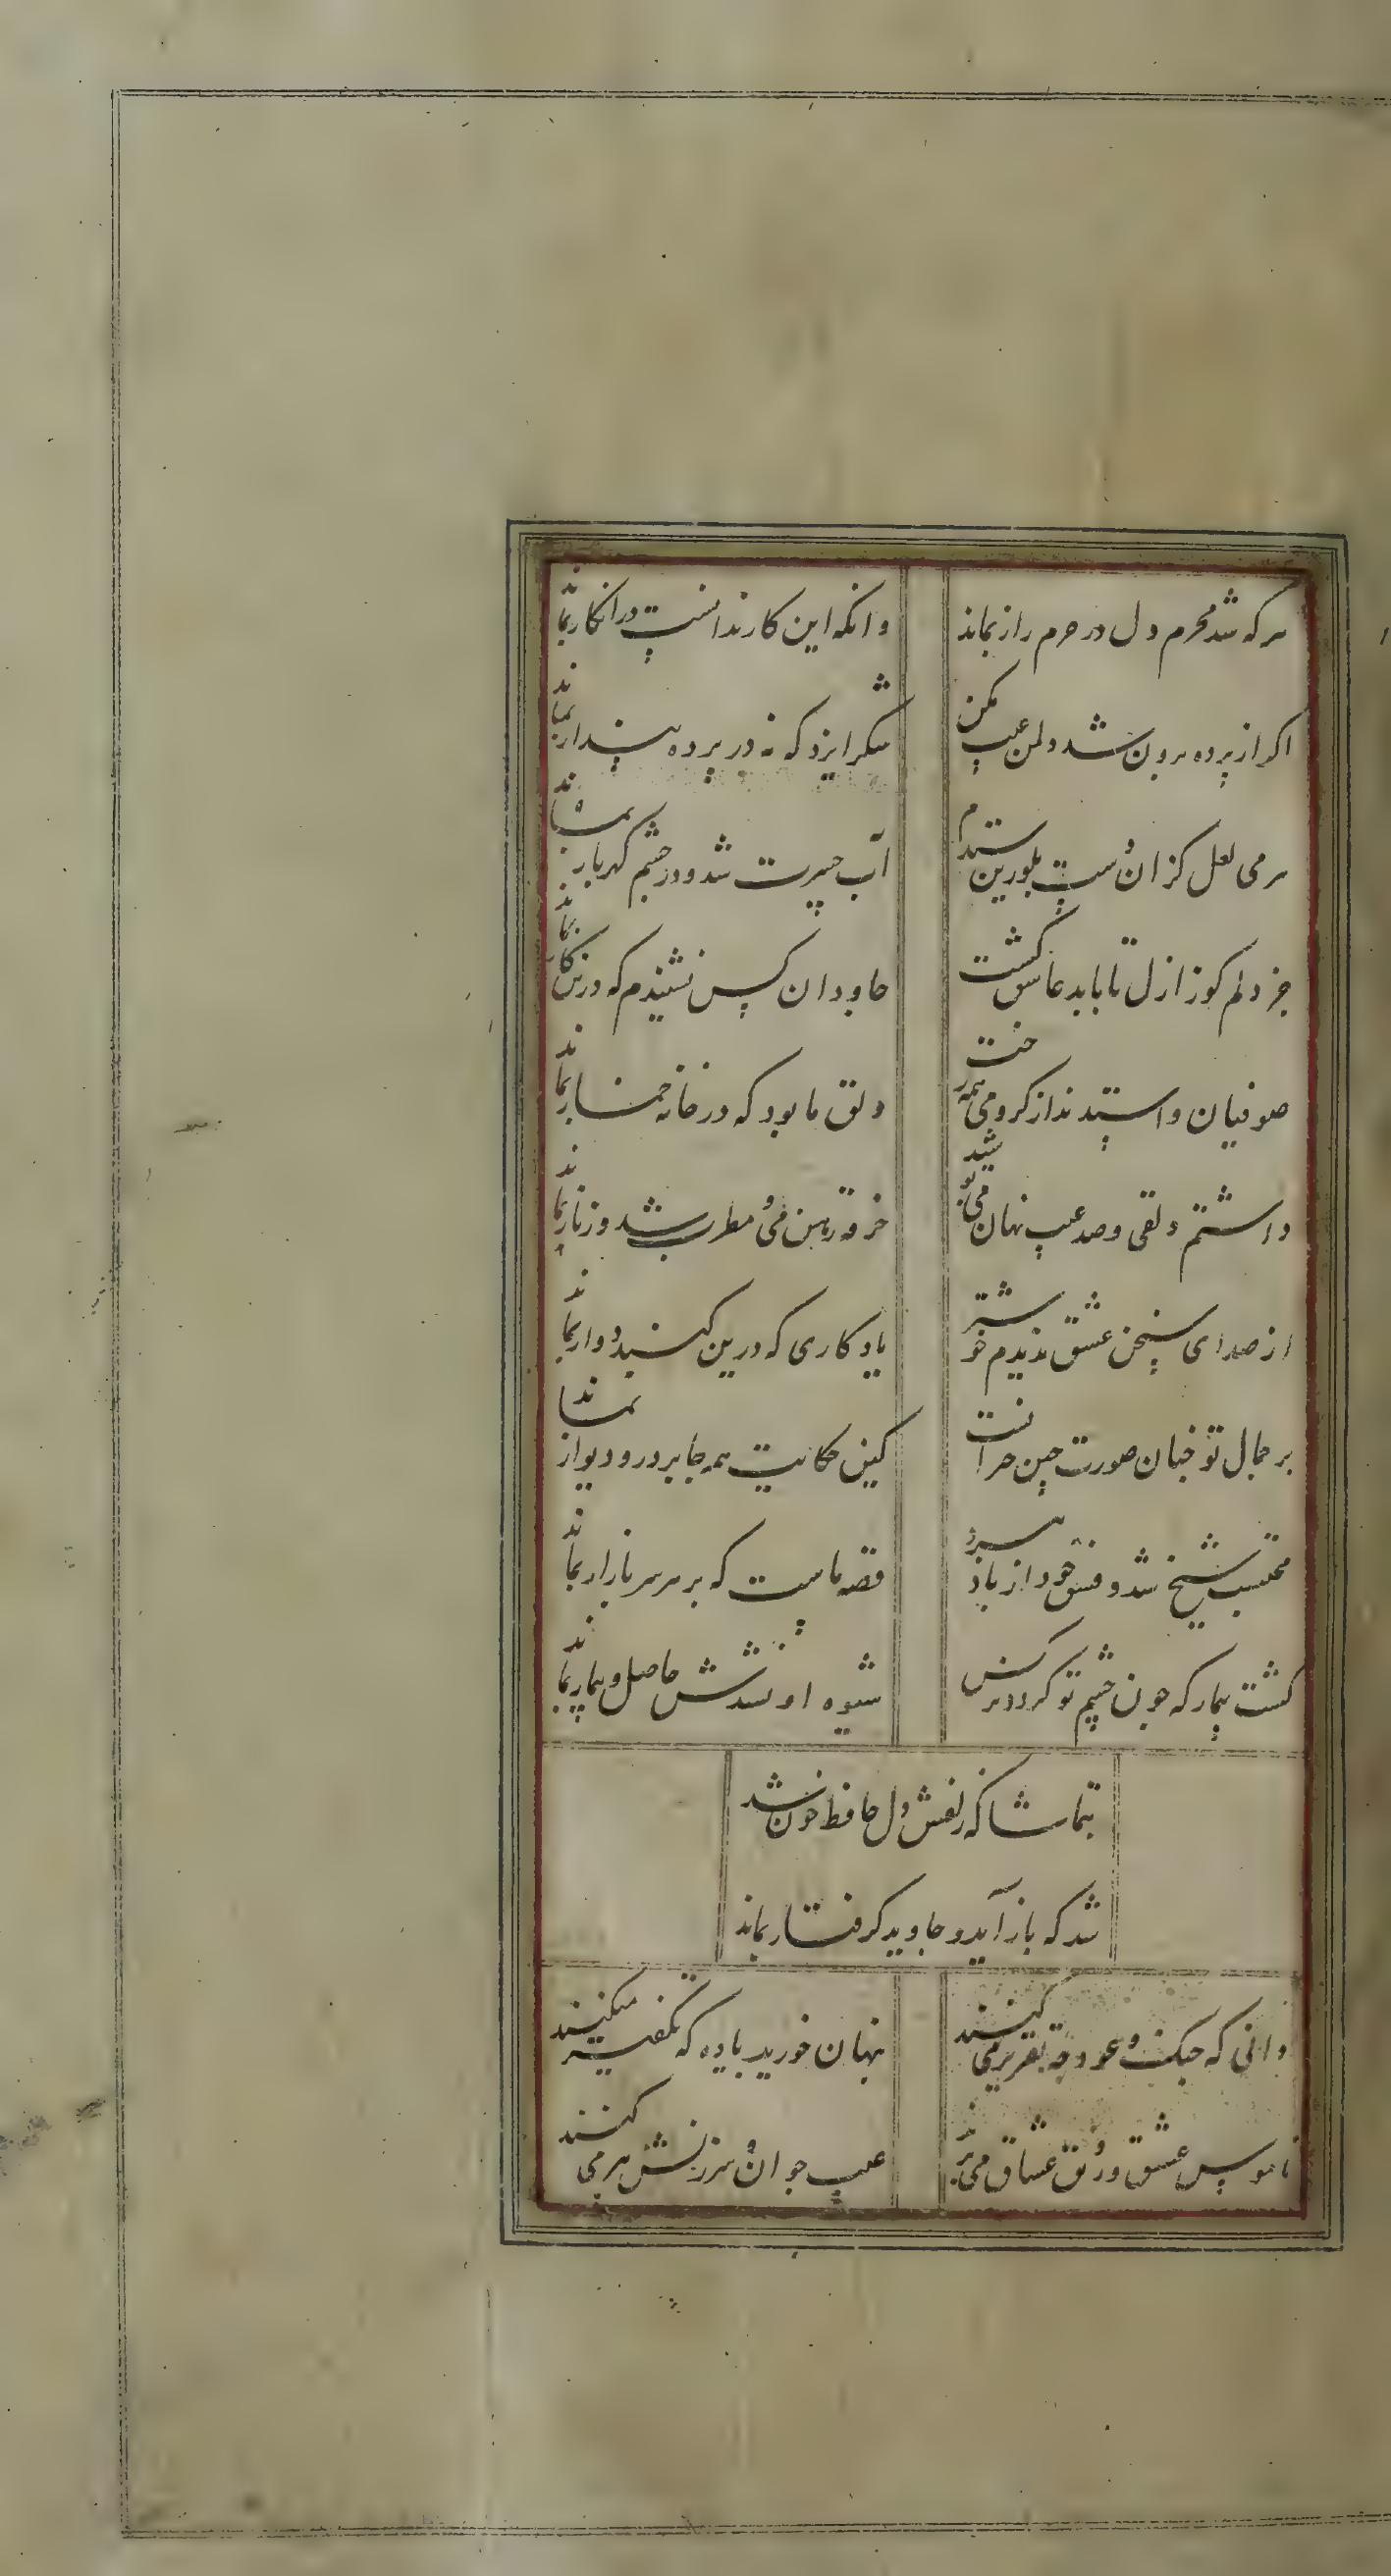 هر که شد محرم دل در حرم راز بماند
وانکه این کار ندانست در انکار بماند
اکر از پرده برون شد دل من عیب مکن
شکر ایزد که نه در پرده پندار بماند
هر می لعل کزان دست بلورین ستدم
آب حسرت شد و در چشم کهربار بماند
جز دلم کو ز ازل تا بابد عاشق کشت
جاودان کس نشنیدم که درین کار بماند
صوفیان واستدند از کرو می همه رخت
دلق ما بود که در خانه خمار بماند
داشتم دلقی و صد عیب نهان می پوشید
خرقه رهن می و مطرب شد و زنار بماند
از صدای سخن عشق ندیدم خوشتر
یادکاری که درین کنبد دوار بماند
بر جمال تو چنان صورت چین حیرانست
کین حکایت همه جا بر در و دیوار بماند
محتسب شیخ شد و فسق خود از یاد ببرد
قصه ماست که بر هر سر بازار بماند
کشت بیمار که چون چشم تو کردد نرکس
شیوه او نشدش حاصل و بیمار بماند
بتماشاکه زلفش دل حافظ خون شد
شد که باز آید و جاوید کرفتار بماند
دانی که چنک و عود چه تقریر می کنند
پنهان خورید باده که تکفیر میکنند
ناموس عشق و رونق عشاق می برند
عیب جوان و سرزنش پیر می کنند